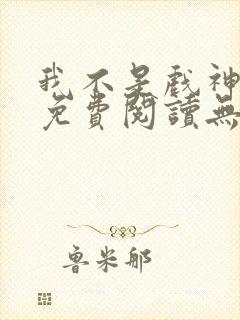 我不是戲神
免費閱讀無
魯米邮